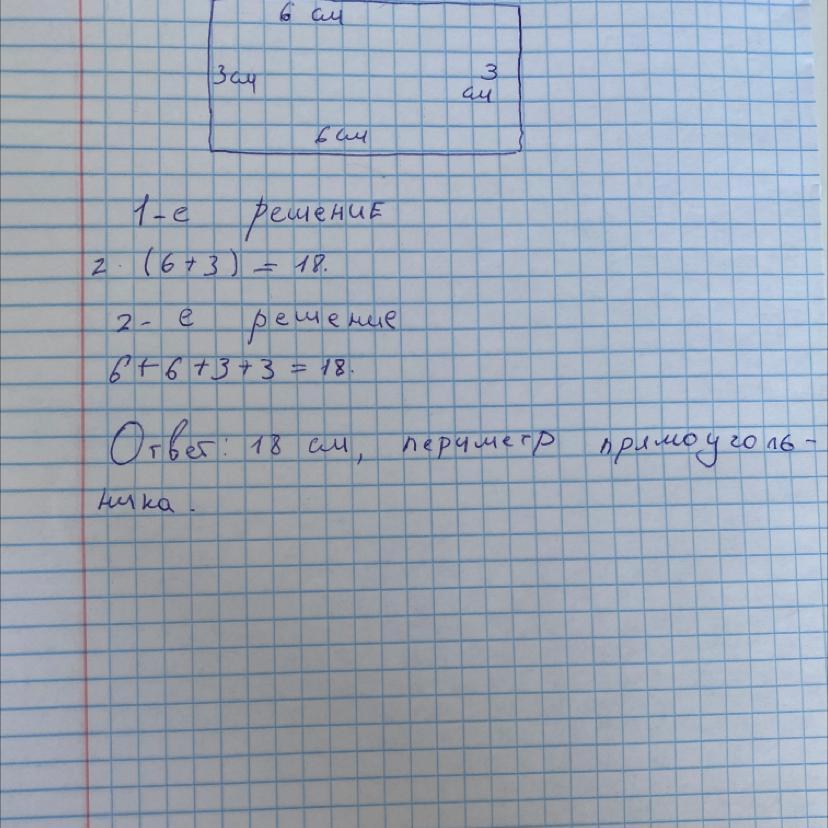 6 см
3 см
3
см
6 см
1-е решение
2 · (6+3) = 18.
2-е решение
6+6+3+3 = 18.
Ответ: 18 см, периметр прямоуголь-
ника.